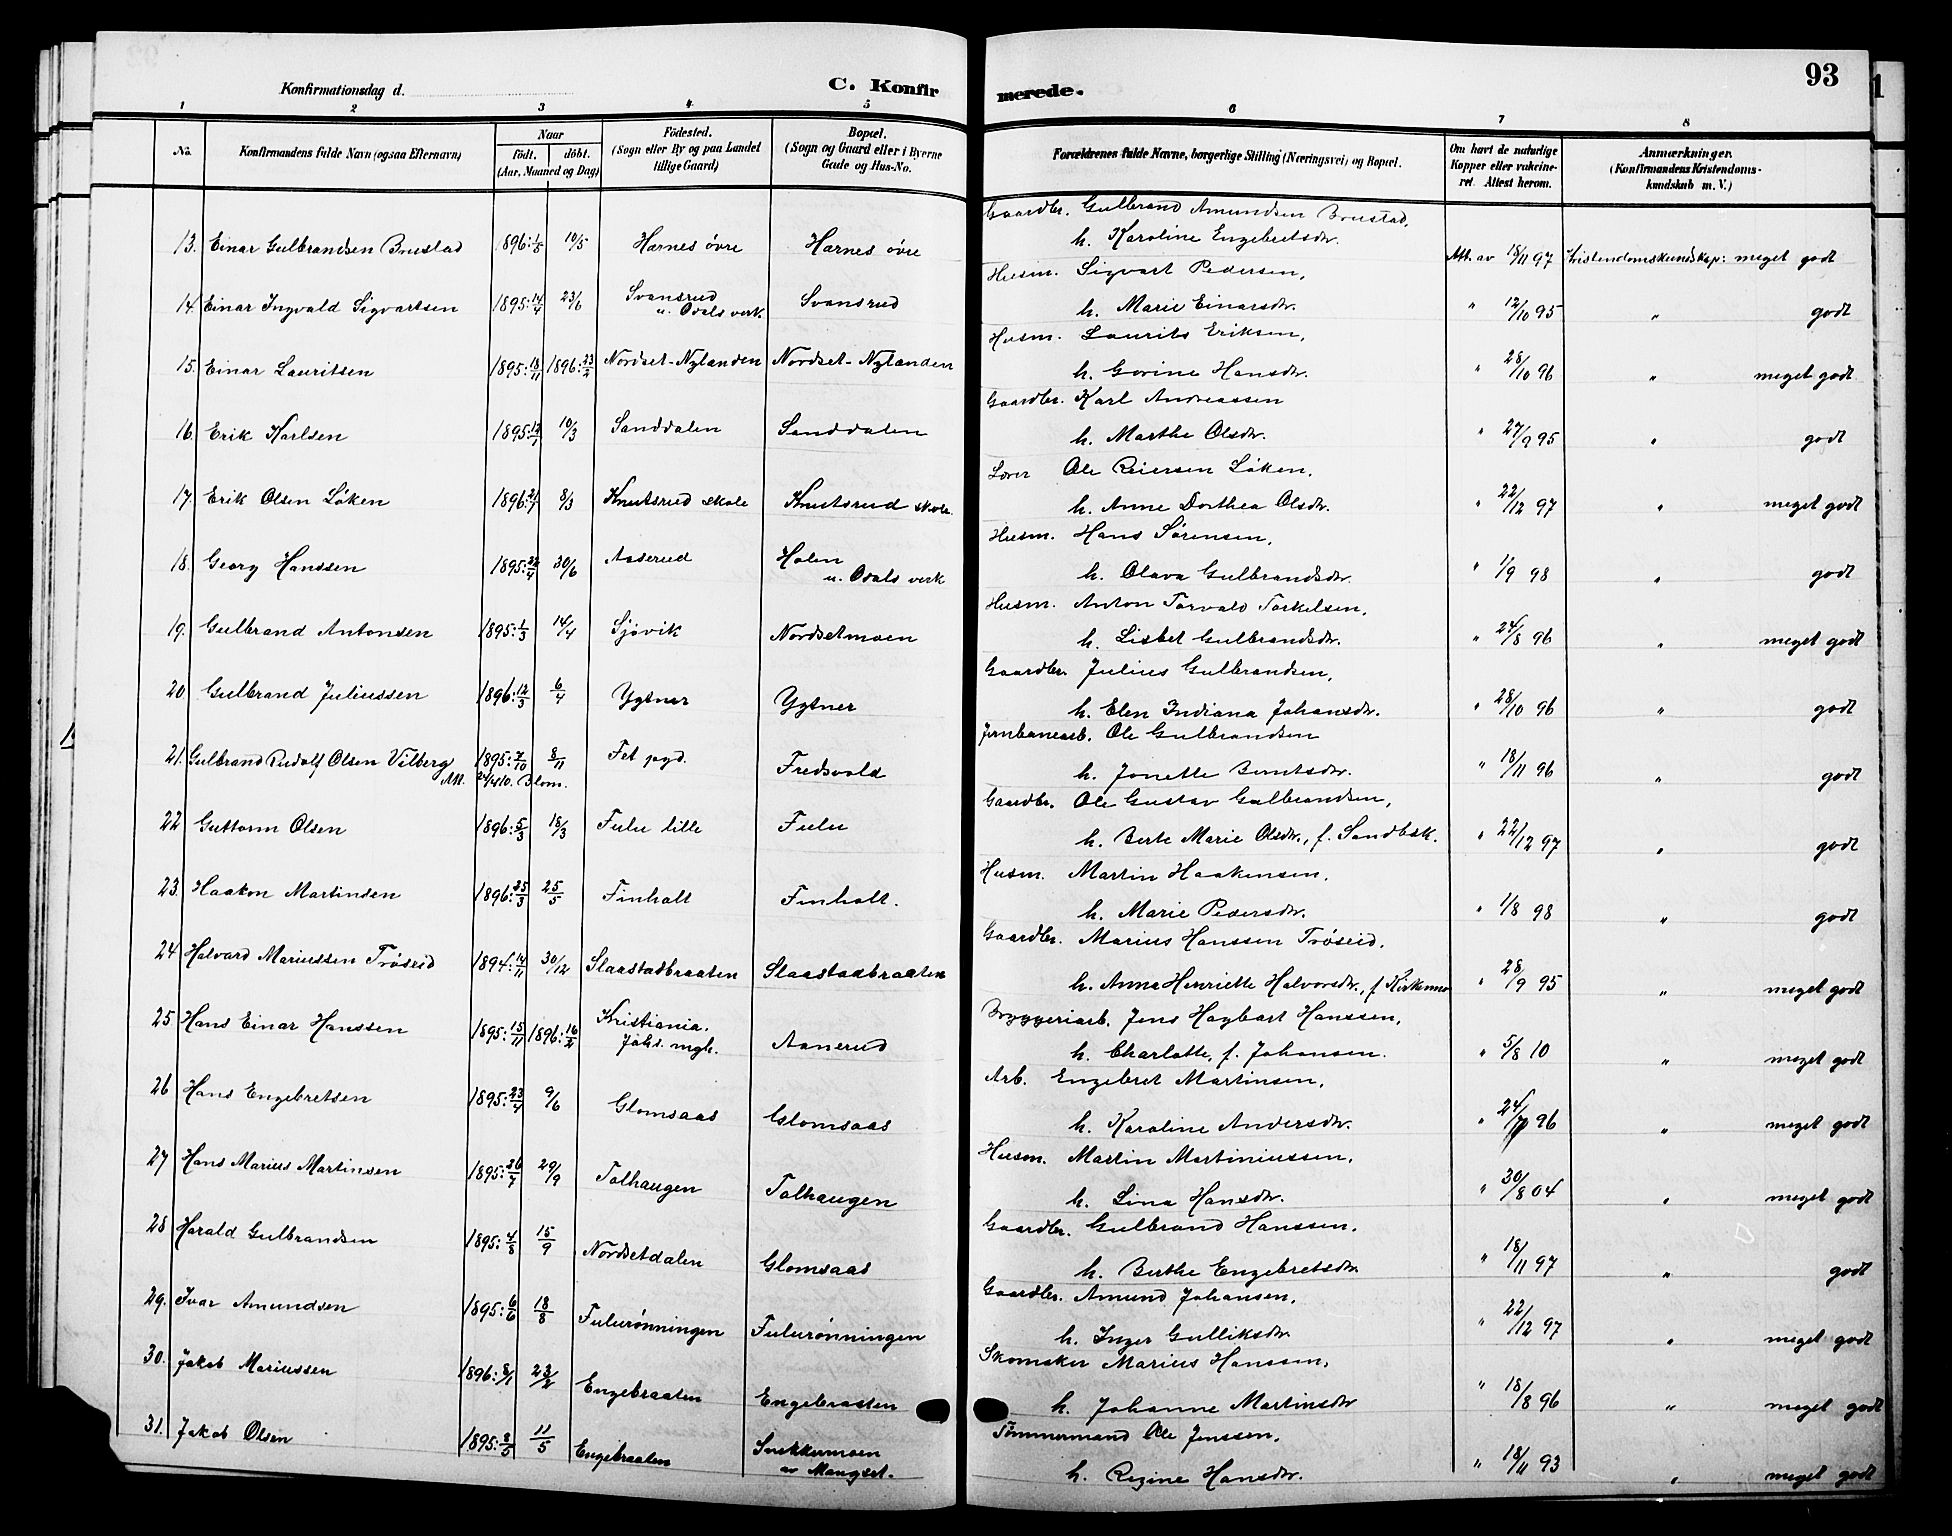 93
Konfirmationsdag d.
C. Konfirmerede.
1 2 3 4 5 6 7 8
No. Konfirmandens fulde Navn (ogsaa Efternavn) Naar født. døbt. (Aar, Maaned og Dag) Fødested. (Sogn eller By og paa Landet tillige Gaard) Bopæl. (Sogn og Gaard eller i Byerne Gade og Hus-No. Forældrenes fulde Navne, borgerlige Stilling (Næringsvei) og Bopæl. Om havt de naturlige Kopper eller vakcineret. Attest herom. Anmærkninger. (Konfirmandens Kristendomskundskab m. V.)
Gaardbr. Gulbrand Amundsen Brustad,
13. Einar Gulbrandsen Brustad 1896: 1/5 10/5 Harnes øvre Harnes øvre h. Karoline Engebretsdr. Att. av 18/11 97 Kristendomskundskap: meget godt
Husm. Sigvart Pedersen,
14. Einar Ingvald Sigvartsen 1895: 14/4 23/6 Svansrud u. Odals verk Svansrud h. Marie Einarsdr. " 12/10 95 " godt
Husm. Laurits Eriksen,
15. Einar Lauritsen 1895: 13/11 1896: 23/2 Nordset-Nylanden Nordset-Nylanden h. Gorine Hansdr. " 28/10 96 " meget godt
Gaardbr. Karl Andreassen
16. Erik Karlsen 1895: 10/3 Sanddalen Sanddalen h. Marthe Olsdr. " 27/9 95 " godt
Lærer Ole Reiersen Løken,
17. Erik Olsen Løken 1896: 8/3 Knutsrud skole Knutsrud skole. h. Anne Dorthea Olsdr. " 22/12 97 " meget godt
Husm. Hans Sørensen,
18. Georg Hanssen 1895: 30/6 Aaserud Holen u. Odals verk h. Olava Gulbrandsdr. " 1/9 98 " godt
Husm. Anton Torvald Torkelsen,
19. Gulbrand Antonsen 1895: 1/3 14/4 Sjøvik Nordsetmoen h. Lisbet Gulbrandsdr. " 24/8 96 " meget godt
Gaardbr. Julius Gulbrandsen,
20. Gulbrand Juliussen 1896: 12/3 6/4 Ygtner Ygtner h. Elen Indiana Johansdr. " 28/10 96 " godt
Jernbanearb. Ole Gulbrandsen
21. Gulbrand Rudolf Olsen Vilberg 1895: 7/10 8/11 Fet pgd. Fredsvold h. Jonette Berntsdr. " 18/11 96 " godt
Att. Blom.
Gaardbr. Ole Gustav Gulbrandsen,
22 Guttorm Olsen 1896: 5/3 18/3 Fulu lille Fulu h. Berte Marie Olsdr., f. Sandbæk. " 22/12 97 " godt
Husm. Martin Haakensen,
23. Haakon Martinsen 1896: 25/3 25/5 Finholt Finholt. h. Marie Pedersdr. " 1/8 98 " godt
Gaardbr. Marius Hanssen Trøseid,
24 Halvard Mariussen Trøseid 1894: 14/11 30/12 Slaastadbraaten Slaastadbraaten h. Anna Henriette Halvorsdr., f " 28/9 95 " meget godt
Bryggeriarb. Jens Hagbart Hanssen,
25 Hans Einar Hanssen 1895: 15/11 1896: 16/2 Kristiania. Johs. mgh. Aanerud h. Charlotte, f. Johansen. " 5/8 10 " meget godt
Arb. Engebret Martinsen,
26 Hans Engebretsen 1895: 23/4 9/6 Glomsaas Glomsaas h. Karoline Andersdr. " 96 " meget godt
Husm. Martin Martiniussen,
27 Hans Marius Martinsen 1895: 26/7 29/9 Tolhaugen Tolhaugen h. Lina Hansdr. " 30/8 04 " meget godt
Gaardbr. Gulbrand Hanssen,
28 Harald Gulbrandsen 1895: 4/8 15/9 Nordsetdalen Glomsaas h. Berthe Engebretsdr. " 18/11 97 " godt
Gaardbr. Amund Johansen,
29. Ivar Amundsen 1895: 6/6 18/8 Fulurønningen Fulurønningen h. Inger Gulliksdr. " 22/12 97 " meget godt
Skomaker Marius Hanssen,
30. Jakob Mariussen 1896: 8/1 23/2 Engebraaten Engebraaten h. Johanne Martinsdr " 18/8 96 " meget godt
Tømmermand Ole Jenssen,
31. Jakob Olsen 1895: 11/5 Engebraaten Snekkermoen av Mangset. h. Regine Hansdr. " 18/11 93 " meget godt